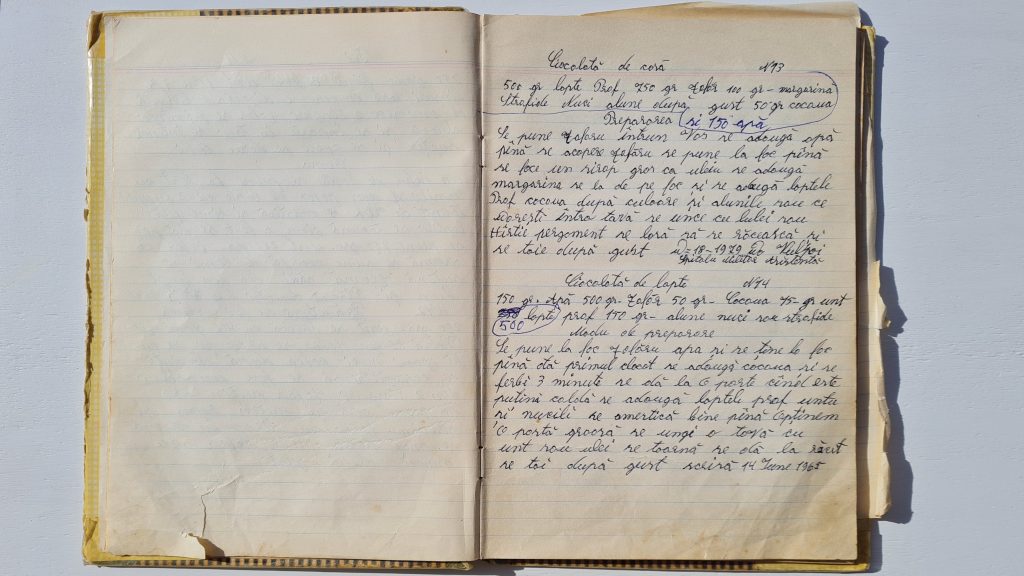 Ciocolată de casă N13
500 gr lapte Praf 750 gr Zafăr 100 gr - margarină
Strafide Nuci alune după gust 50 gr cocoua
Prepararea și 150 apă
Se pune Zafăru întrun Vas se adaugă apă
pînă se acopere Zafăru se pune la foc pînă
se face un sirop gros ca uleiu se adaugă
margarina se ia de pe foc și se adaugă laptele
Praf cocoua după culoare și alunile sau ce
dorești întro tavă se unce cu lulei sau
Hîrtii pergament se lasă să se răcească și
se taie după gust D-18-1979
Ciocolată de lapte N14
150 gr. Apă 500 gr- Zafăr 50 gr- Cocoua 75- gr unt
lapte praf 150 gr- alune nuci sau strafide
500 Modu de preparare
Se pune la foc Zafăru apa și se ține la foc
pînă dă primul clocot se adaugă cocoua și se
ferbi 3 minute se dă la o parte cînd este
puțini caldă se adaugă laptele praf untu
și nucili se amertică bine pînă opținem
O pastă groasă se ungi o tavă cu
unt sau ulei se toarnă se dă la răcit
se tai după gust scrisă 14 Iune 1965